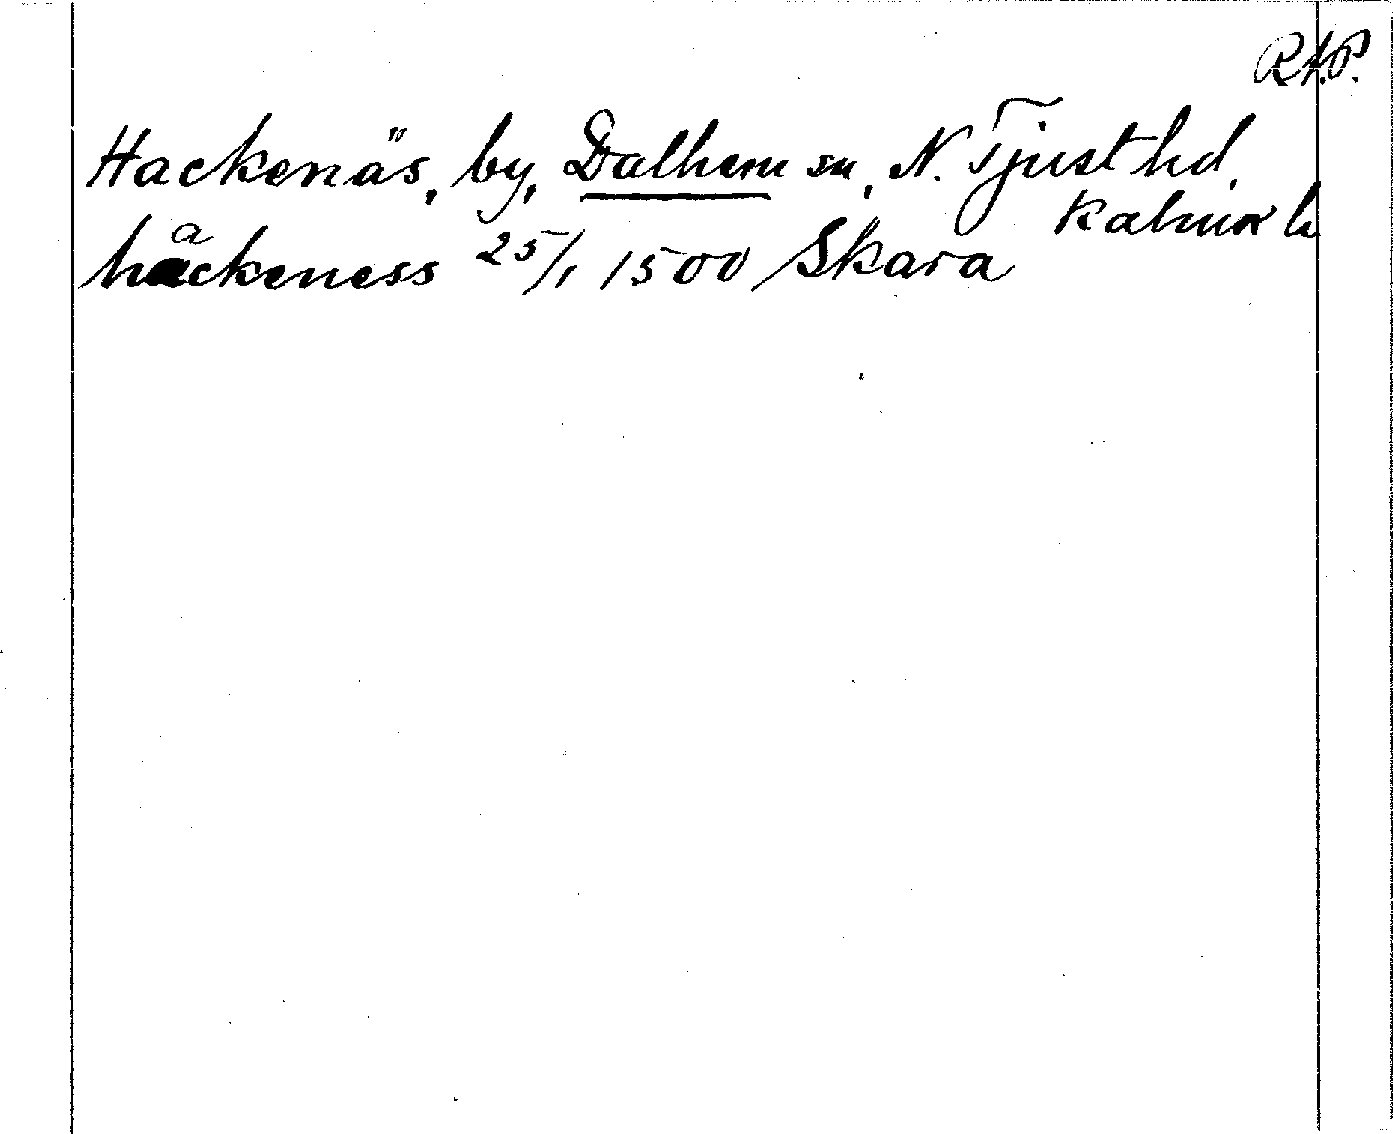 RAP.
Hackenäs, by, Dalhem sn, N. Tjust hd,
Kalmar l.
hackeness 25/1 1500 Skara